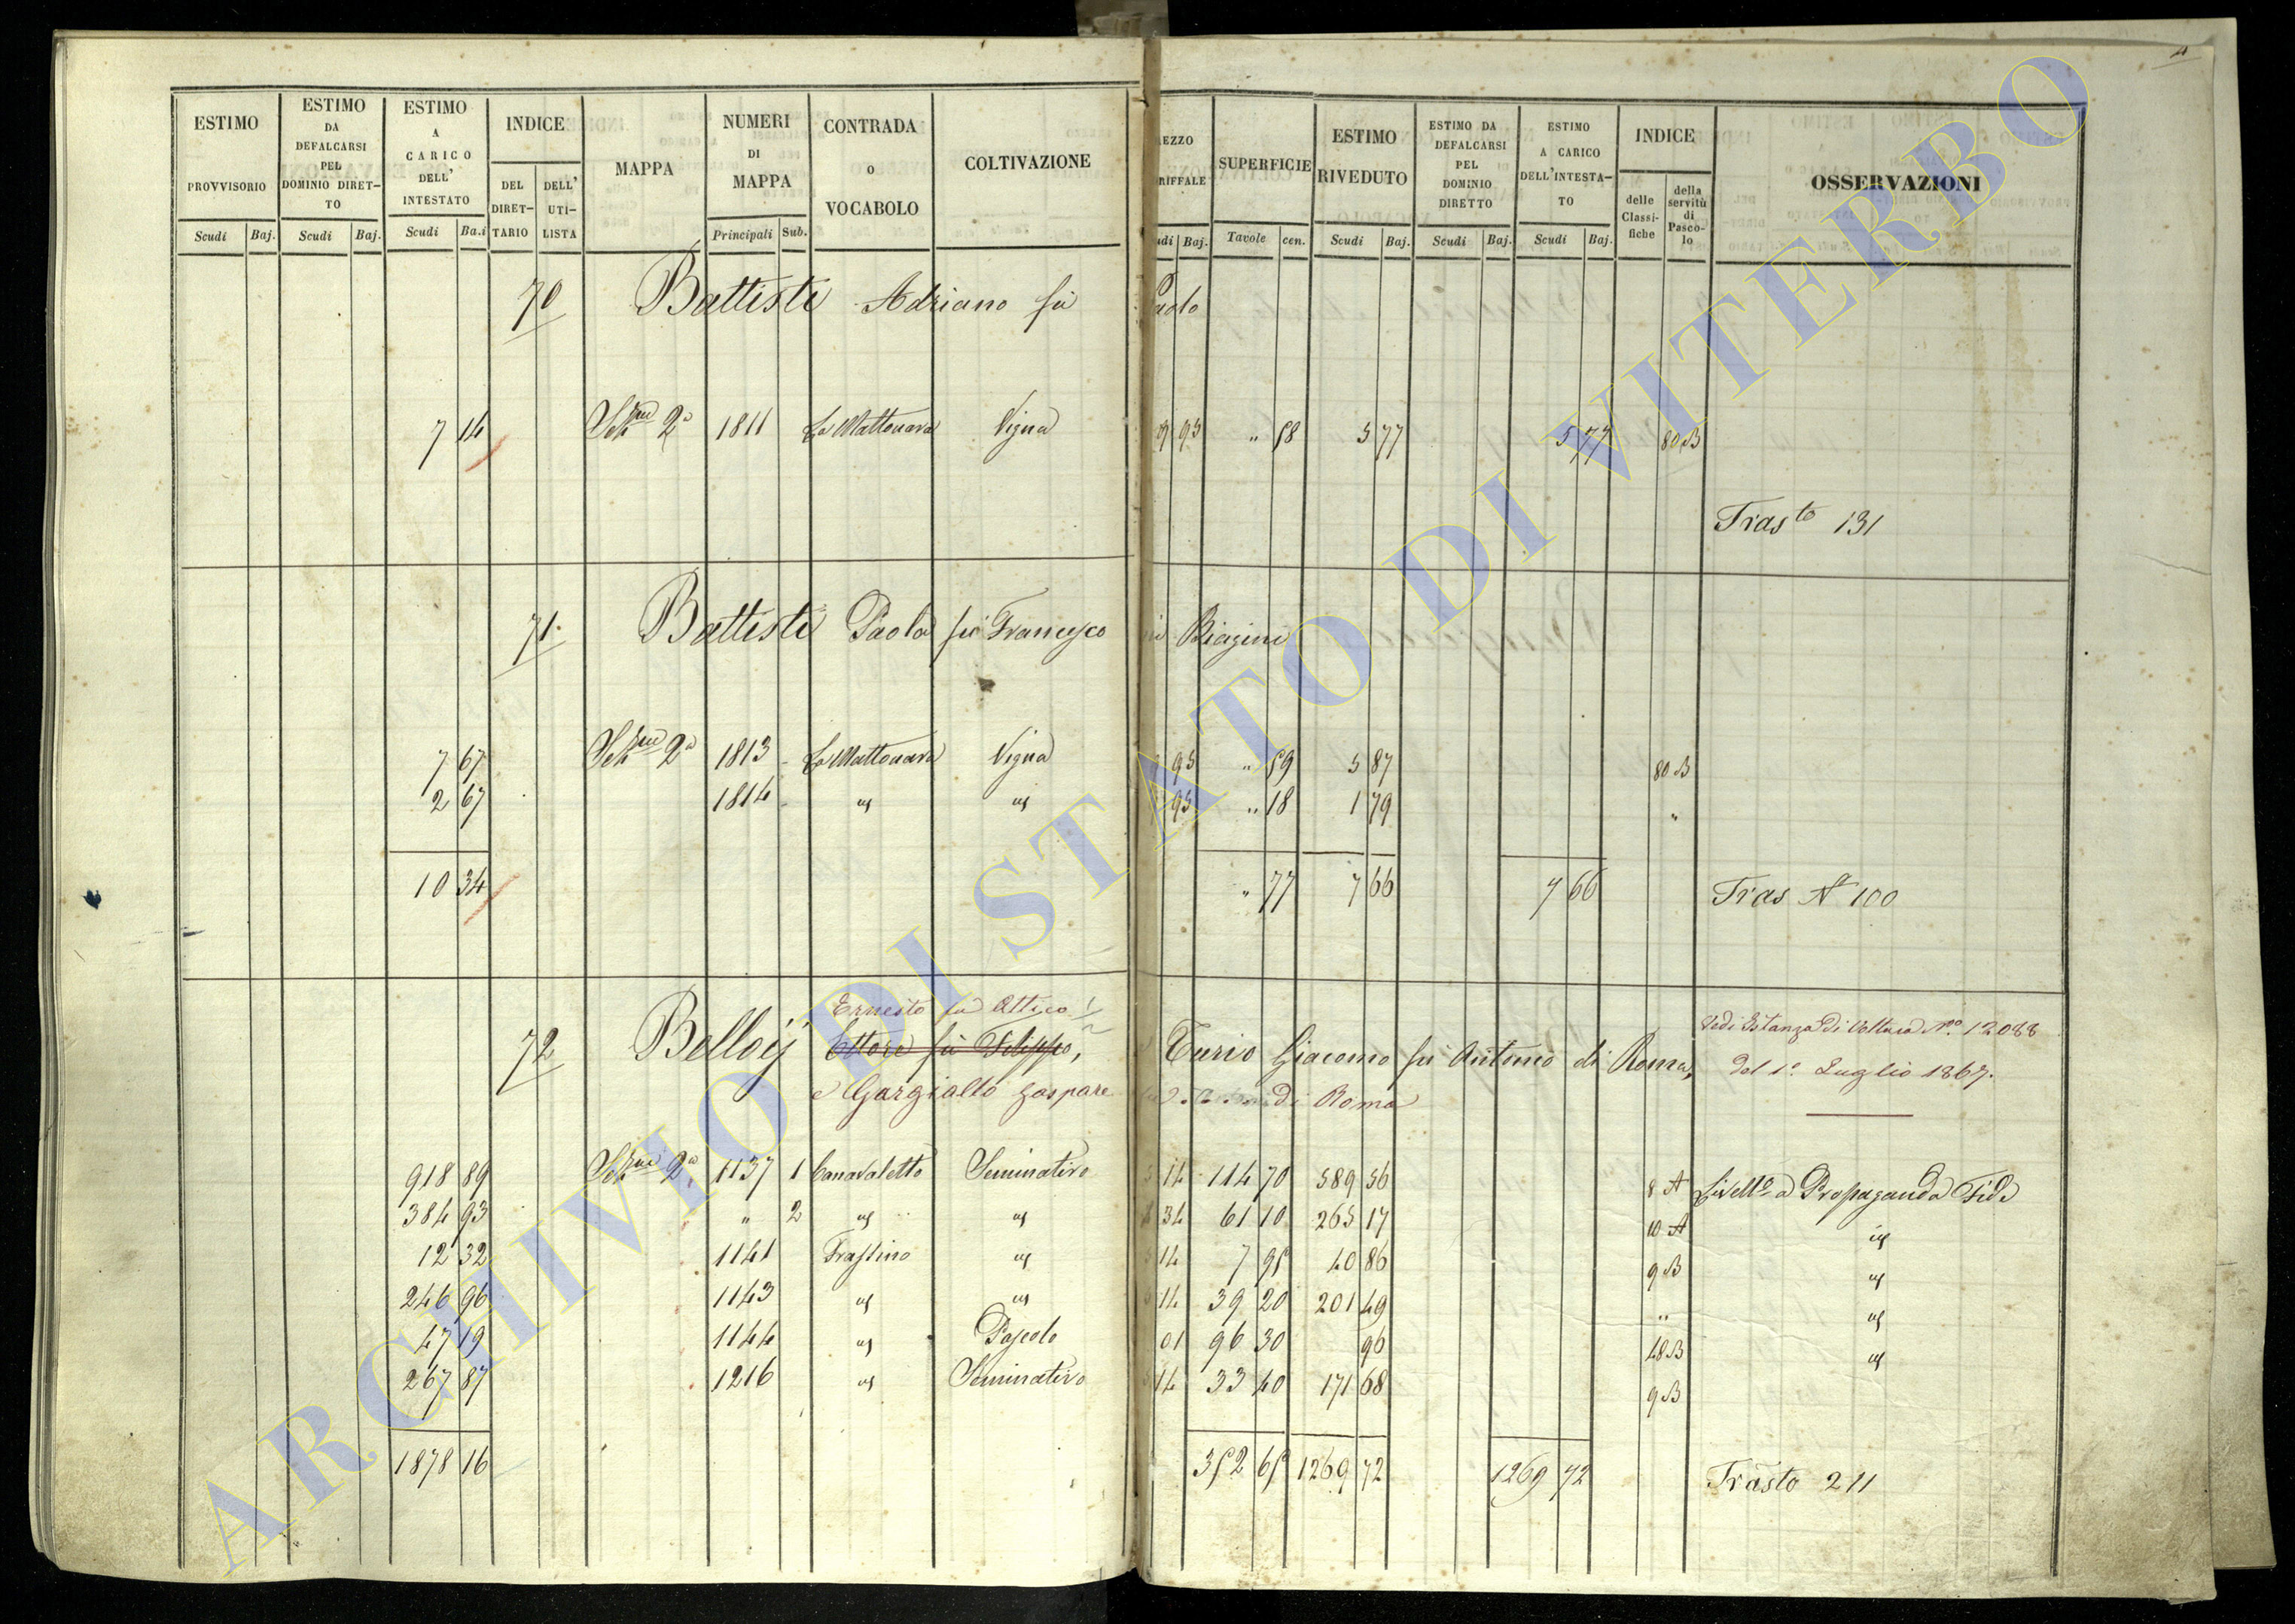 ESTIMO PROVVISORIO
ESTIMO DA DEFALCARSI PEL DOMINIO DIRET-TO
ESTIMO A CARICO DELL' INTESTATO
INDICE
DEL DIRET-TARIO
DELL' UTI-LISTA
MAPPA
NUMERI DI MAPPA
CONTRADA o VOCABOLO
COLTIVAZIONE
EZZO
RIFFALE
SUPERFICIE
ESTIMO RIVEDUTO
ESTIMO DA DEFALCARSI PEL DOMINIO DIRETTO
ESTIMO A CARICO DELL'INTESTA-TO
INDICE
delle Classi-fiche
della servitù di Pasco-lo
OSSERVAZIONI
Scudi Baj. Scudi Baj. Scudi Ba.i Principali Sub.
udi Baj. Tavole cen. Scudi Baj. Scudi Baj. Scudi Baj.
70 Battisti Adriano fu Paolo
7 14 Sez.ne 2a 1811 La Mattonara Vigna 9 93 " 58 5 77 5 77 80 B
Trasto 131
71. Battisti Paola fu Francesco in Biagini
7 67 Sez.ne 2a 1813 La Mattonara Vigna 93 " 59 5 87 80 B
2 67 1814 " " 93 " 18 1 79 "
10 34 " 77 7 66 7 66 Tras N 100
Ernesto fu Attico
72 Belloij Ettore fu Filippo, e Turio Giacomo fu Antonio di Roma,
e Gargiallo Gaspare di Roma
Vedi Istanza di Voltura No. 12088
del 1o Luglio 1867.
918 89 Sez.ne 2a 1137 1 Canavaletto Seminativo 14 114 70 589 56 8 A Livello a Propaganda Fide
384 93 " 2 " " 34 61 10 265 17 10 A "
12 32 1141 Frassino " 14 7 95 40 86 9 B "
246 96 1143 " " 14 39 20 201 49 " "
47 19 1144 " Pascolo 01 96 30 96 48 B "
267 87 1216 " Seminativo 14 33 40 171 68 9 B
1878 16 352 65 1269 72 1269 72 Trasto 211
ARCHIVIO DI STATO DI VITERBO